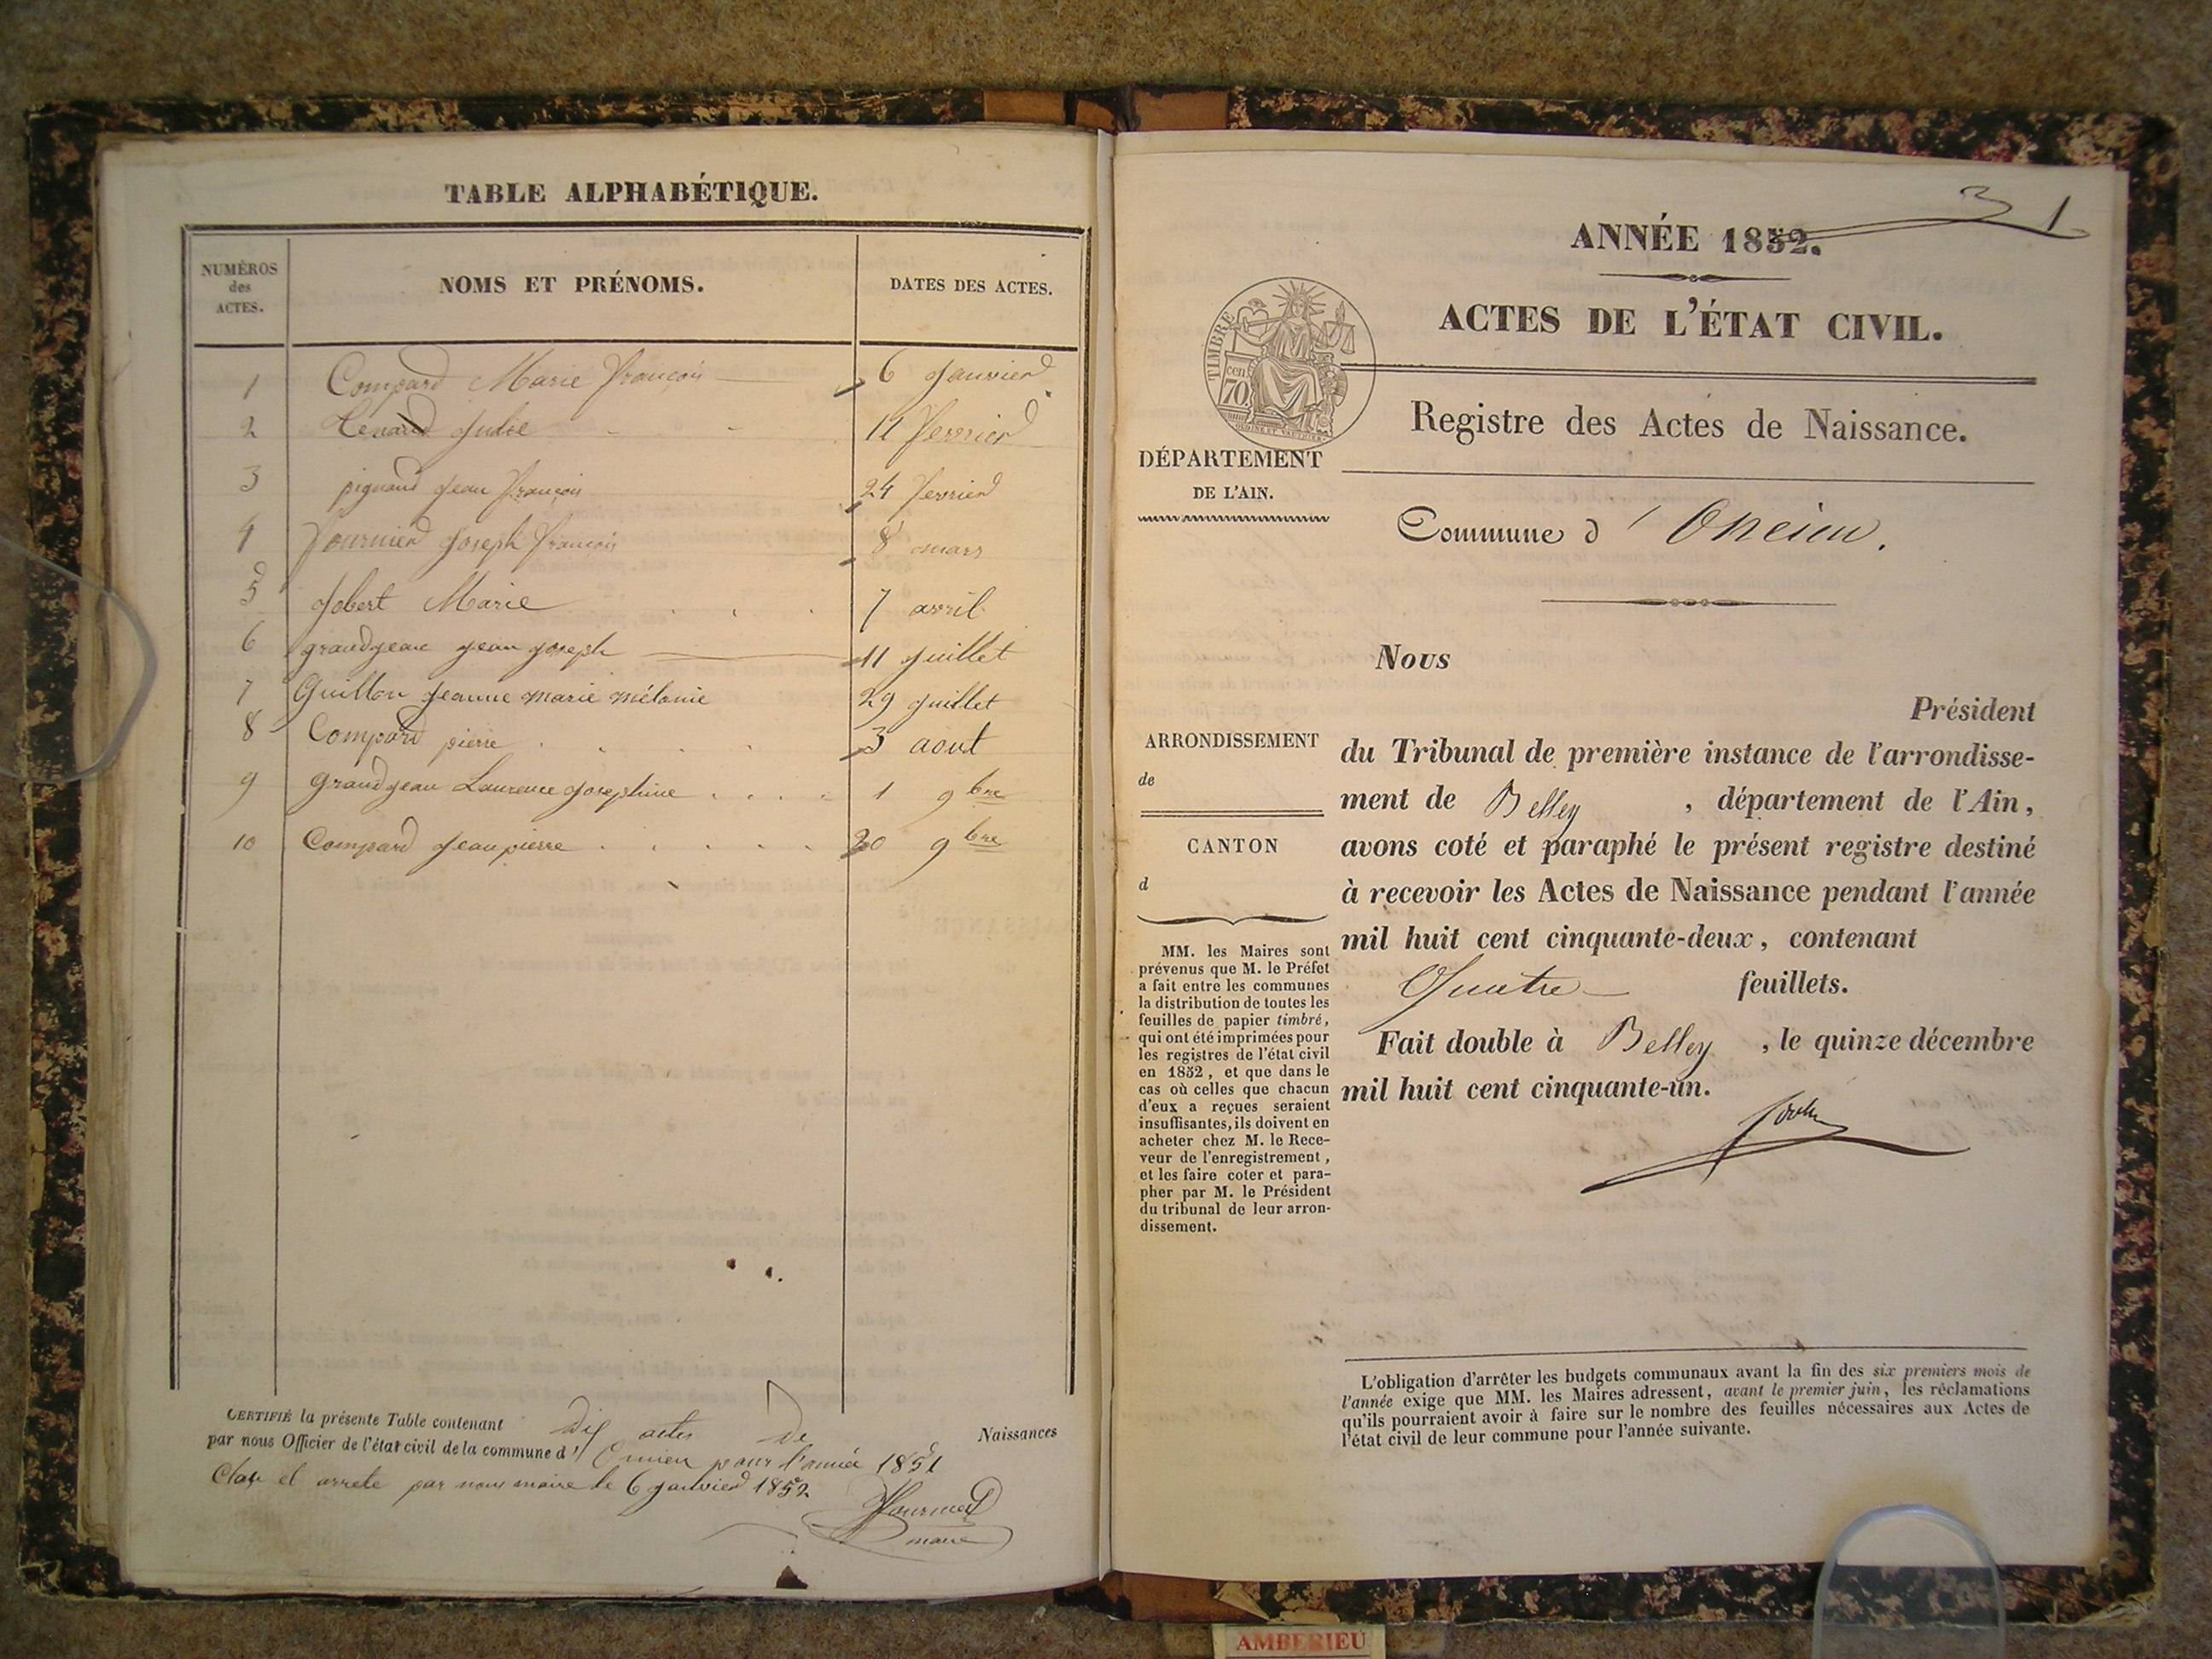 TABLE ALPHABÉTIQUE.
NUMÉROS des ACTES.
NOMS ET PRÉNOMS.
DATES DES ACTES.
1 Compard Marie françois 6 Janvier
2 Julie 12 fevrier
3 pignard Jean françois 24 fevrier
4 fournier Joseph françois 8 mars
5 Jobert Marie 7 avril
6 grandjean jean joseph 11 Juillet
7 Guillon Jeanne marie mélanie 29 Juillet
8 Compard pierre 3 aout
9 grandjean Laurence Josephine 1 9bre
10 Compard Jean pierre 20 9bre
CERTIFIÉ la présente Table contenant dix actes de Naissances
par nous Officier de l'état civil de la commune d' Oncieu pour l'année 1851
Clos et arrete par nous maire le 6 janvier 1852
fournier
maire
1
ANNÉE 1852.
ACTES DE L'ÉTAT CIVIL.
TIMBRE
70 cen
Registre des Actes de Naissance.
DÉPARTEMENT
DE L'AIN.
Commune d' Oncieu.
Nous
Président
du Tribunal de première instance de l'arrondisse-
ment de Belley, département de l'Ain,
avons coté et paraphé le présent registre destiné
à recevoir les Actes de Naissance pendant l'année
mil huit cent cinquante-deux, contenant
Quatre feuillets.
Fait double à Belley, le quinze décembre
mil huit cent cinquante-un.
ARRONDISSEMENT
de
CANTON
d
MM. les Maires sont
prévenus que M. le Préfet
a fait entre les communes
la distribution de toutes les
feuilles de papier timbré,
qui ont été imprimées pour
les registres de l'état civil
en 1852, et que dans le
cas où celles que chacun
d'eux a reçues seraient
insuffisantes, ils doivent en
acheter chez M. le Rece-
veur de l'enregistrement,
et les faire coter et para-
pher par M. le Président
du tribunal de leur arron-
dissement.
L'obligation d'arrêter les budgets communaux avant la fin des six premiers mois de
l'année exige que MM. les Maires adressent, avant le premier juin, les réclamations
qu'ils pourraient avoir à faire sur le nombre des feuilles nécessaires aux Actes de
l'état civil de leur commune pour l'année suivante.
AMBERIEU